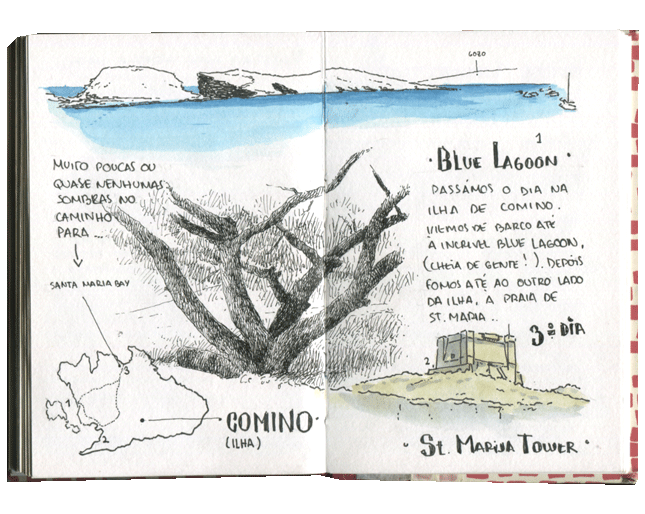 GOZO
MUITO POUCAS OU
QUASE NENHUMAS
SOMBRAS NO
CAMINHO
PARA ...
SANTA MARIA BAY
1
· BLUE LAGOON ·
PASSÁMOS O DIA NA
ILHA DE COMINO.
VIEMOS DE BARCO ATÉ
À INCRIVEL BLUE LAGOON,
(CHEIA DE GENTE!). DEPOIS
FOMOS ATÉ AO OUTRO LADO
DA ILHA, A PRAIA DE
ST. MARIA ..
3º DIA
2
3
1
2
COMINO
(ILHA)
ST. MARIJA TOWER